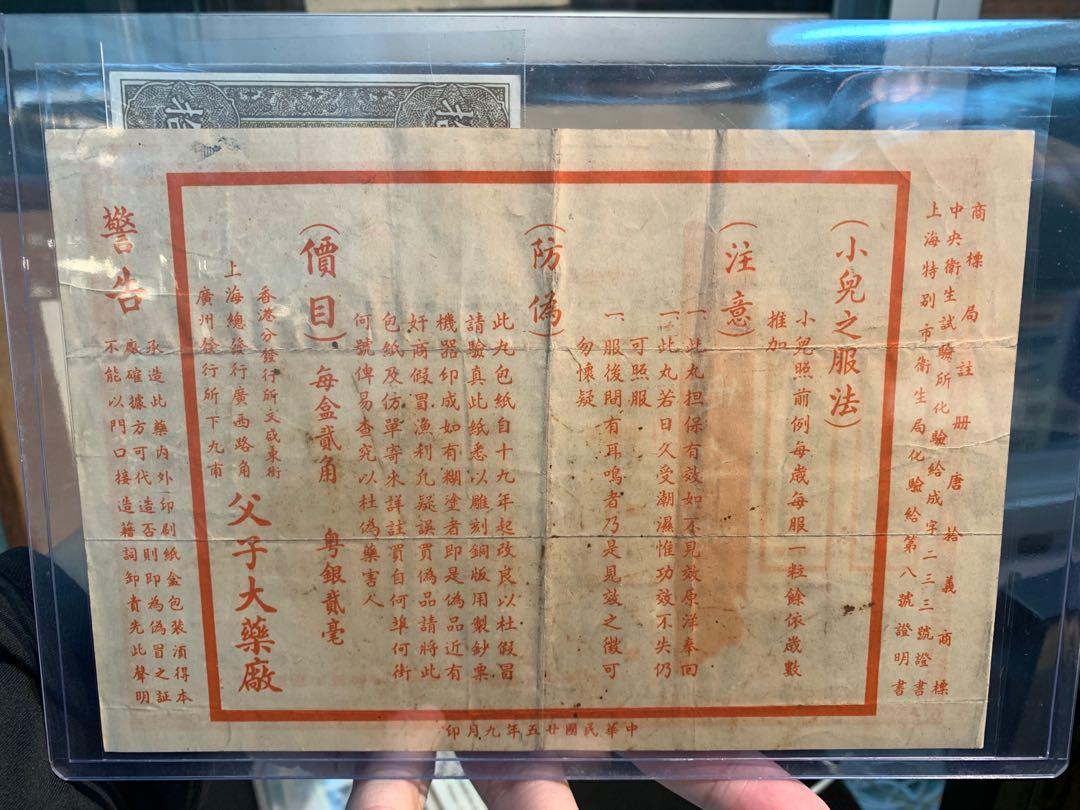 商標局註册唐拾義商標
中央衛生試驗所化驗給成字二三三號證書
上海特別市衛生局化驗給第八號證明書
(小兒之服法)
小兒照前例每歲每服一粒餘依歲數
推加
(注意)
一、此丸担保有效如不見效原洋奉回
一、此丸若日久受潮濕惟功效不失仍
可照服
一、服後間有耳鳴者乃是見效之徵可
勿懷疑
(防偽)
此丸包紙自十九年起改良以杜假冒
請驗真此紙悉以雕刻銅版用製鈔票
機器印成如有糊塗者即是偽品近有
奸商假冒漁利允疑誤買偽品請將此
包紙及仿單寄來詳註買自何埠何街
何號俾易查究以杜偽藥害人
(價目)每盒貳角 粵銀貳毫
香港分發行所文咸東街
上海總發行廣西路角
廣州發行所下九甫
父子大藥廠
警告
承造此藥內外印刷紙金包裝須得本
廠確據方可代造否則即為偽冒之証
不能以門口接造藉詞卸責先此聲明
中華民國廿五年九月印
拾
拾